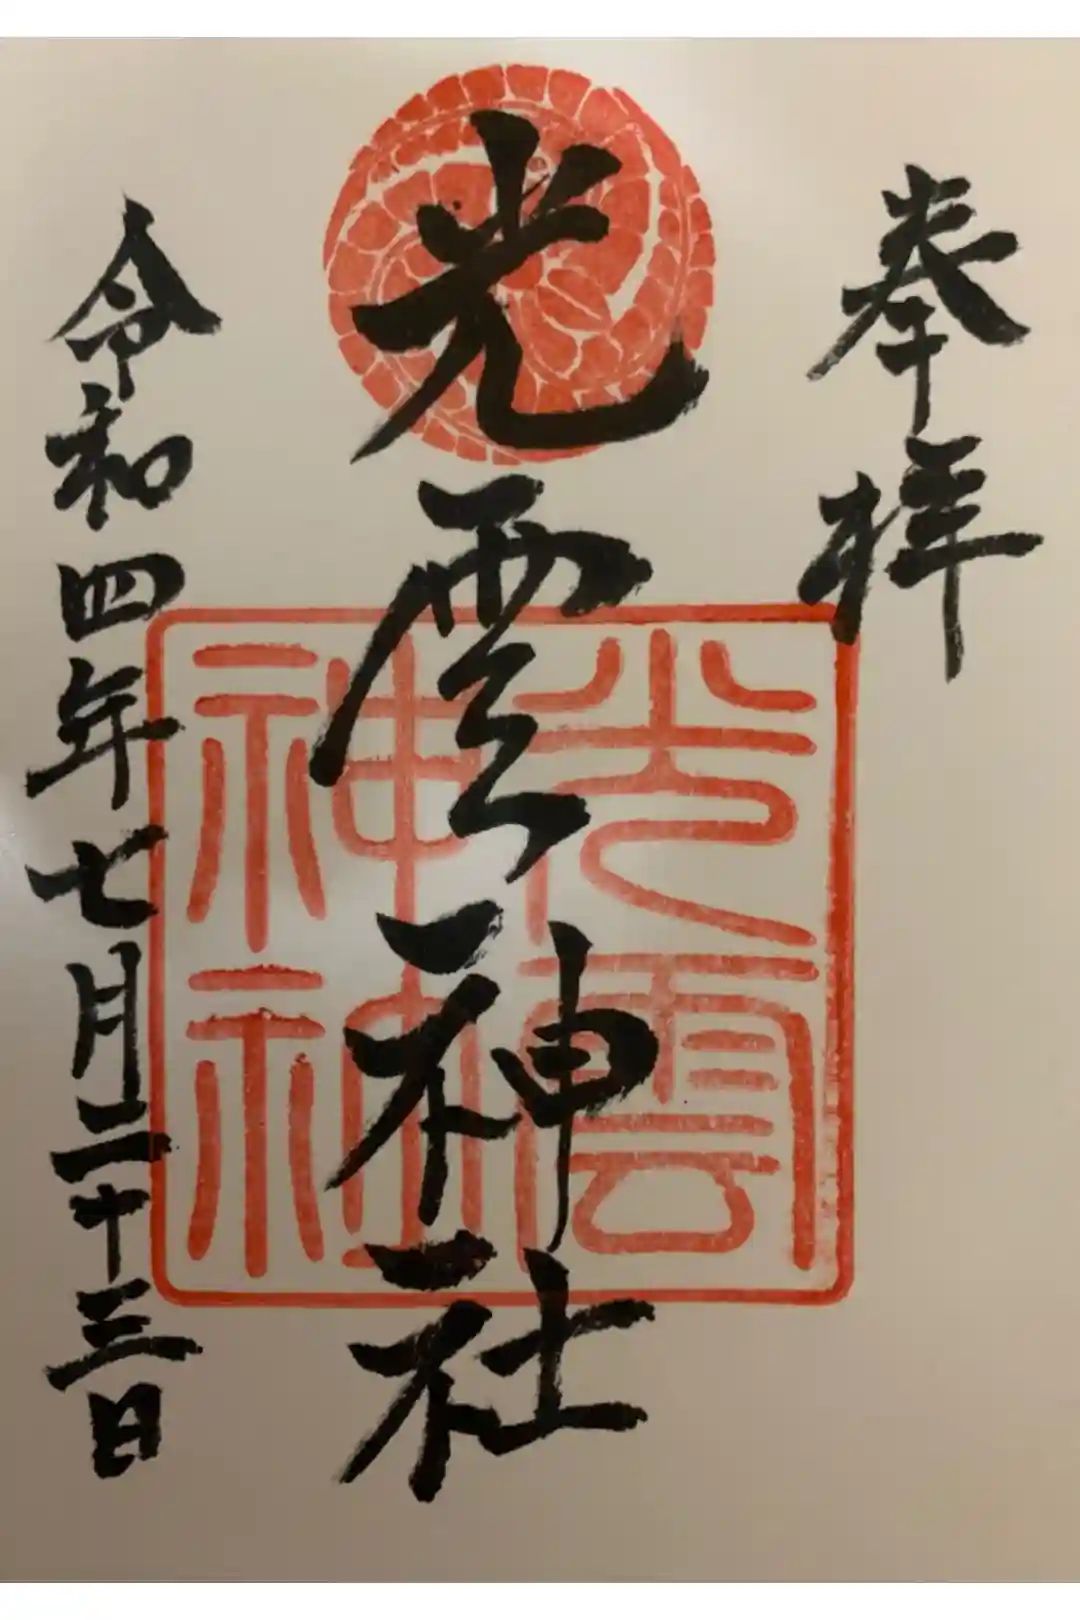 奉拝
光雲神社
光雲
神社
令和四年七月二十三日